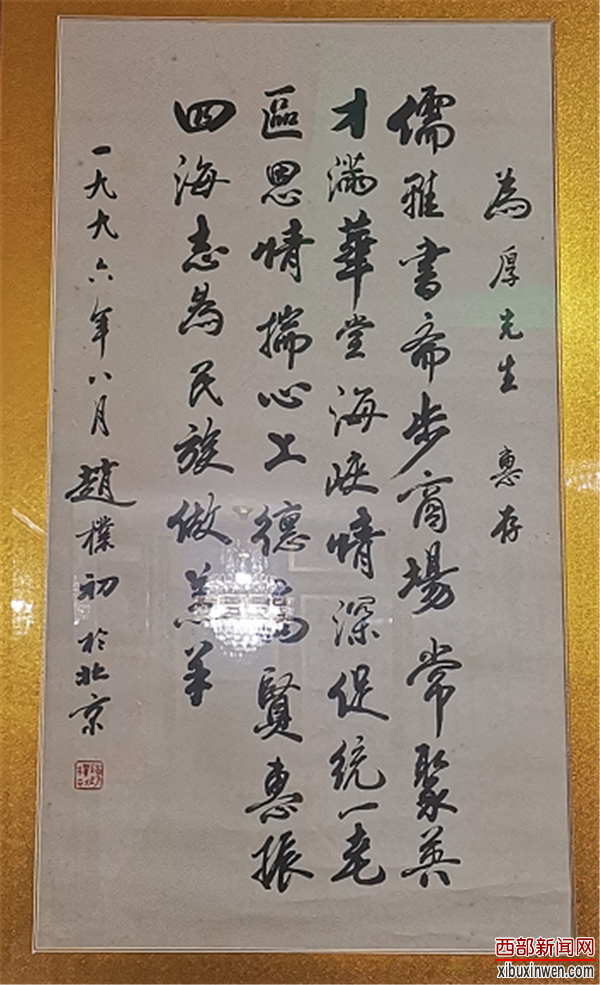 為厚先生 惠存
儒雅書斋步商場常聚英
才滿華堂海峡情深促统一老
區恩情揣心上德高賢惠振
四海志為民族做羔羊
一九九六年八月趙樸初於北京
西部新闻网
xibuxinwen.com